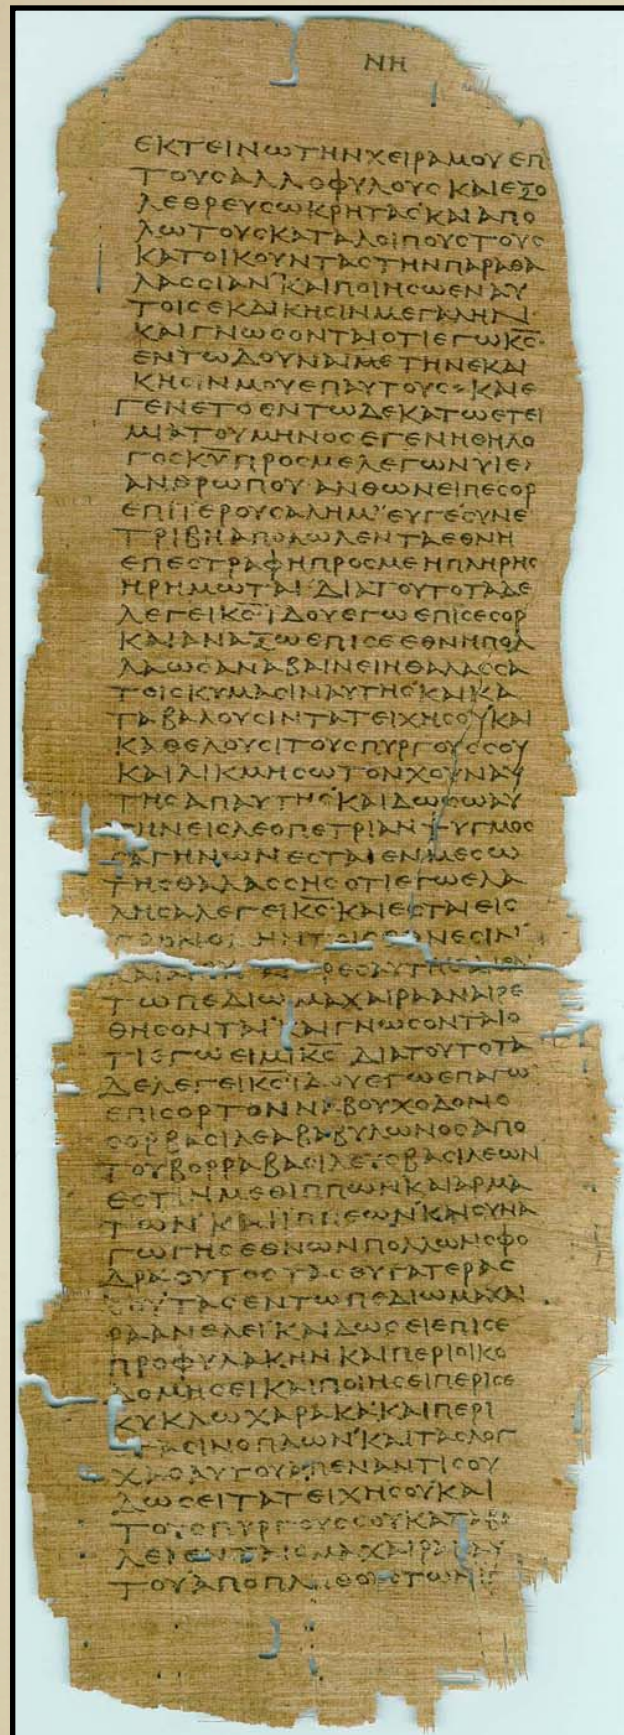 ΝΗ
ΕΚΤΕΙΝΩΤΗΝΧΕΙΡΑΜΟΥΕΠΙ
ΤΟΥΣΑΛΛΟΦΥΛΟΥΣΚΑΙΕΞΟ
ΛΕΘΡΕΥΣΩΚΡΗΤΑΣΚΑΙΑΠΟ
ΛΩΤΟΥΣΚΑΤΑΛΟΙΠΟΥΣΤΟΥΣ
ΚΑΤΟΙΚΟΥΝΤΑΣΤΗΝΠΑΡΑΘΑ
ΛΑΣΣΙΑΝ ΚΑΙΠΟΙΗΣΩΕΝΑΥ
ΤΟΙΣΕΚΔΙΚΗΣΙΝΜΕΓΑΛΗΝ
ΚΑΙΓΝΩΣΟΝΤΑΙΟΤΙΕΓΩΚΣ
ΕΝΤΩΔΟΥΝΑΙΜΕΤΗΝΕΚΔΙ
ΚΗΣΙΝΜΟΥΕΠΑΥΤΟΥΣ ΚΑΙΕ
ΓΕΝΕΤΟΕΝΤΩΔΕΚΑΤΩΕΤΕΙ
ΜΙΑΤΟΥΜΗΝΟΣΕΓΕΝΗΘΗΛΟ
ΓΟΣΚΥΠΡΟΣΜΕΛΕΓΩΝΥΙΕ
ΑΝΘΡΩΠΟΥΑΝΘΩΝΕΙΠΕΣΟΡ
ΕΠΙΙΕΡΟΥΣΑΛΗΜ ΕΥΓΕΣΥΝΕ
ΤΡΙΒΗΑΠΟΛΩΛΕΝΤΑΕΘΝΗ
ΕΠΕΣΤΡΑΦΗΠΡΟΣΜΕΗΠΛΗΡΗΣ
ΗΡΗΜΩΤΑΙ ΔΙΑΤΟΥΤΟΤΑΔΕ
ΛΕΓΕΙΚΣ ΙΔΟΥΕΓΩΕΠΙΣΕΣΟΡ
ΚΑΙΑΝΑΞΩΕΠΙΣΕΕΘΝΗΠΟΛ
ΛΑΩΣΑΝΑΒΑΙΝΕΙΗΘΑΛΑΣΣΑ
ΤΟΙΣΚΥΜΑΣΙΝΑΥΤΗΣΚΑΙΚΑ
ΤΑΒΑΛΟΥΣΙΝΤΑΤΕΙΧΗΣΟΥΚΑΙ
ΚΑΘΕΛΟΥΣΙΤΟΥΣΠΥΡΓΟΥΣΣΟΥ
ΚΑΙΛΙΚΜΗΣΩΤΟΝΧΟΥΝΑΥ
ΤΗΣΑΠΑΥΤΗΣΚΑΙΔΩΣΩΑΥ
ΤΗΝΕΙΣΛΕΟΠΕΤΡΙΑΝΨΥΓΜΟΣ
ΣΑΓΗΝΩΝΕΣΤΑΙΕΝΜΕΣΩ
ΤΗΣΘΑΛΑΣΣΗΣΟΤΙΕΓΩΕΛΑ
ΛΗΣΑΛΕΓΕΙΚΣ ΚΑΙΕΣΤΑΙΕΙΣ
ΤΩΠΕΔΙΩΜΑΧΑΙΡΑΑΝΑΙΡΕ
ΘΗΣΟΝΤΑΙΚΑΙΓΝΩΣΟΝΤΑΙΟ
ΤΙΕΓΩΕΙΜΙΚΣ ΔΙΑΤΟΥΤΟΤΑ
ΔΕΛΕΓΕΙΚΣΙΔΟΥΕΓΩΕΠΑΓΩ
ΕΠΙΣΟΡΤΟΝΝΑΒΟΥΧΟΔΟΝΟ
ΣΟΡΒΑΣΙΛΕΑΒΑΒΥΛΩΝΟΣΑΠΟ
ΤΟΥΒΟΡΡΑΒΑΣΙΛΕΥΣΒΑΣΙΛΕΩΝ
ΕΣΤΙΝΜΕΘΙΠΠΩΝΚΑΙΑΡΜΑ
ΤΩΝ ΚΑΙΙΠΠΕΩΝΚΑΙΣΥΝΑ
ΓΩΓΗΣΕΘΝΩΝΠΟΛΛΩΝΣΦΟ
ΔΡΑΟΥΤΟΣΤΑΣΘΥΓΑΤΕΡΑΣ
ΣΟΥΤΑΣΕΝΤΩΠΕΔΙΩΜΑΧΑΙ
ΡΑΑΝΕΛΕΙΚΑΙΔΩΣΕΙΕΠΙΣΕ
ΠΡΟΦΥΛΑΚΗΝΚΑΙΠΕΡΙΟΙΚΟ
ΔΟΜΗΣΕΙΚΑΙΠΟΙΗΣΕΙΠΕΡΙΣΕ
ΚΥΚΛΩΧΑΡΑΚΑΚΑΙΠΕΡΙ
ΣΤΑΣΙΝΟΠΛΩΝΚΑΙΤΑΣΛΟΓ
ΧΑΣΑΥΤΟΥΑΠΕΝΑΝΤΙΣΟΥ
ΔΩΣΕΙΤΑΤΕΙΧΗΣΟΥΚΑΙ
ΤΟΥΣΠΥΡΓΟΥΣΣΟΥΚΑΤΑΒΑ